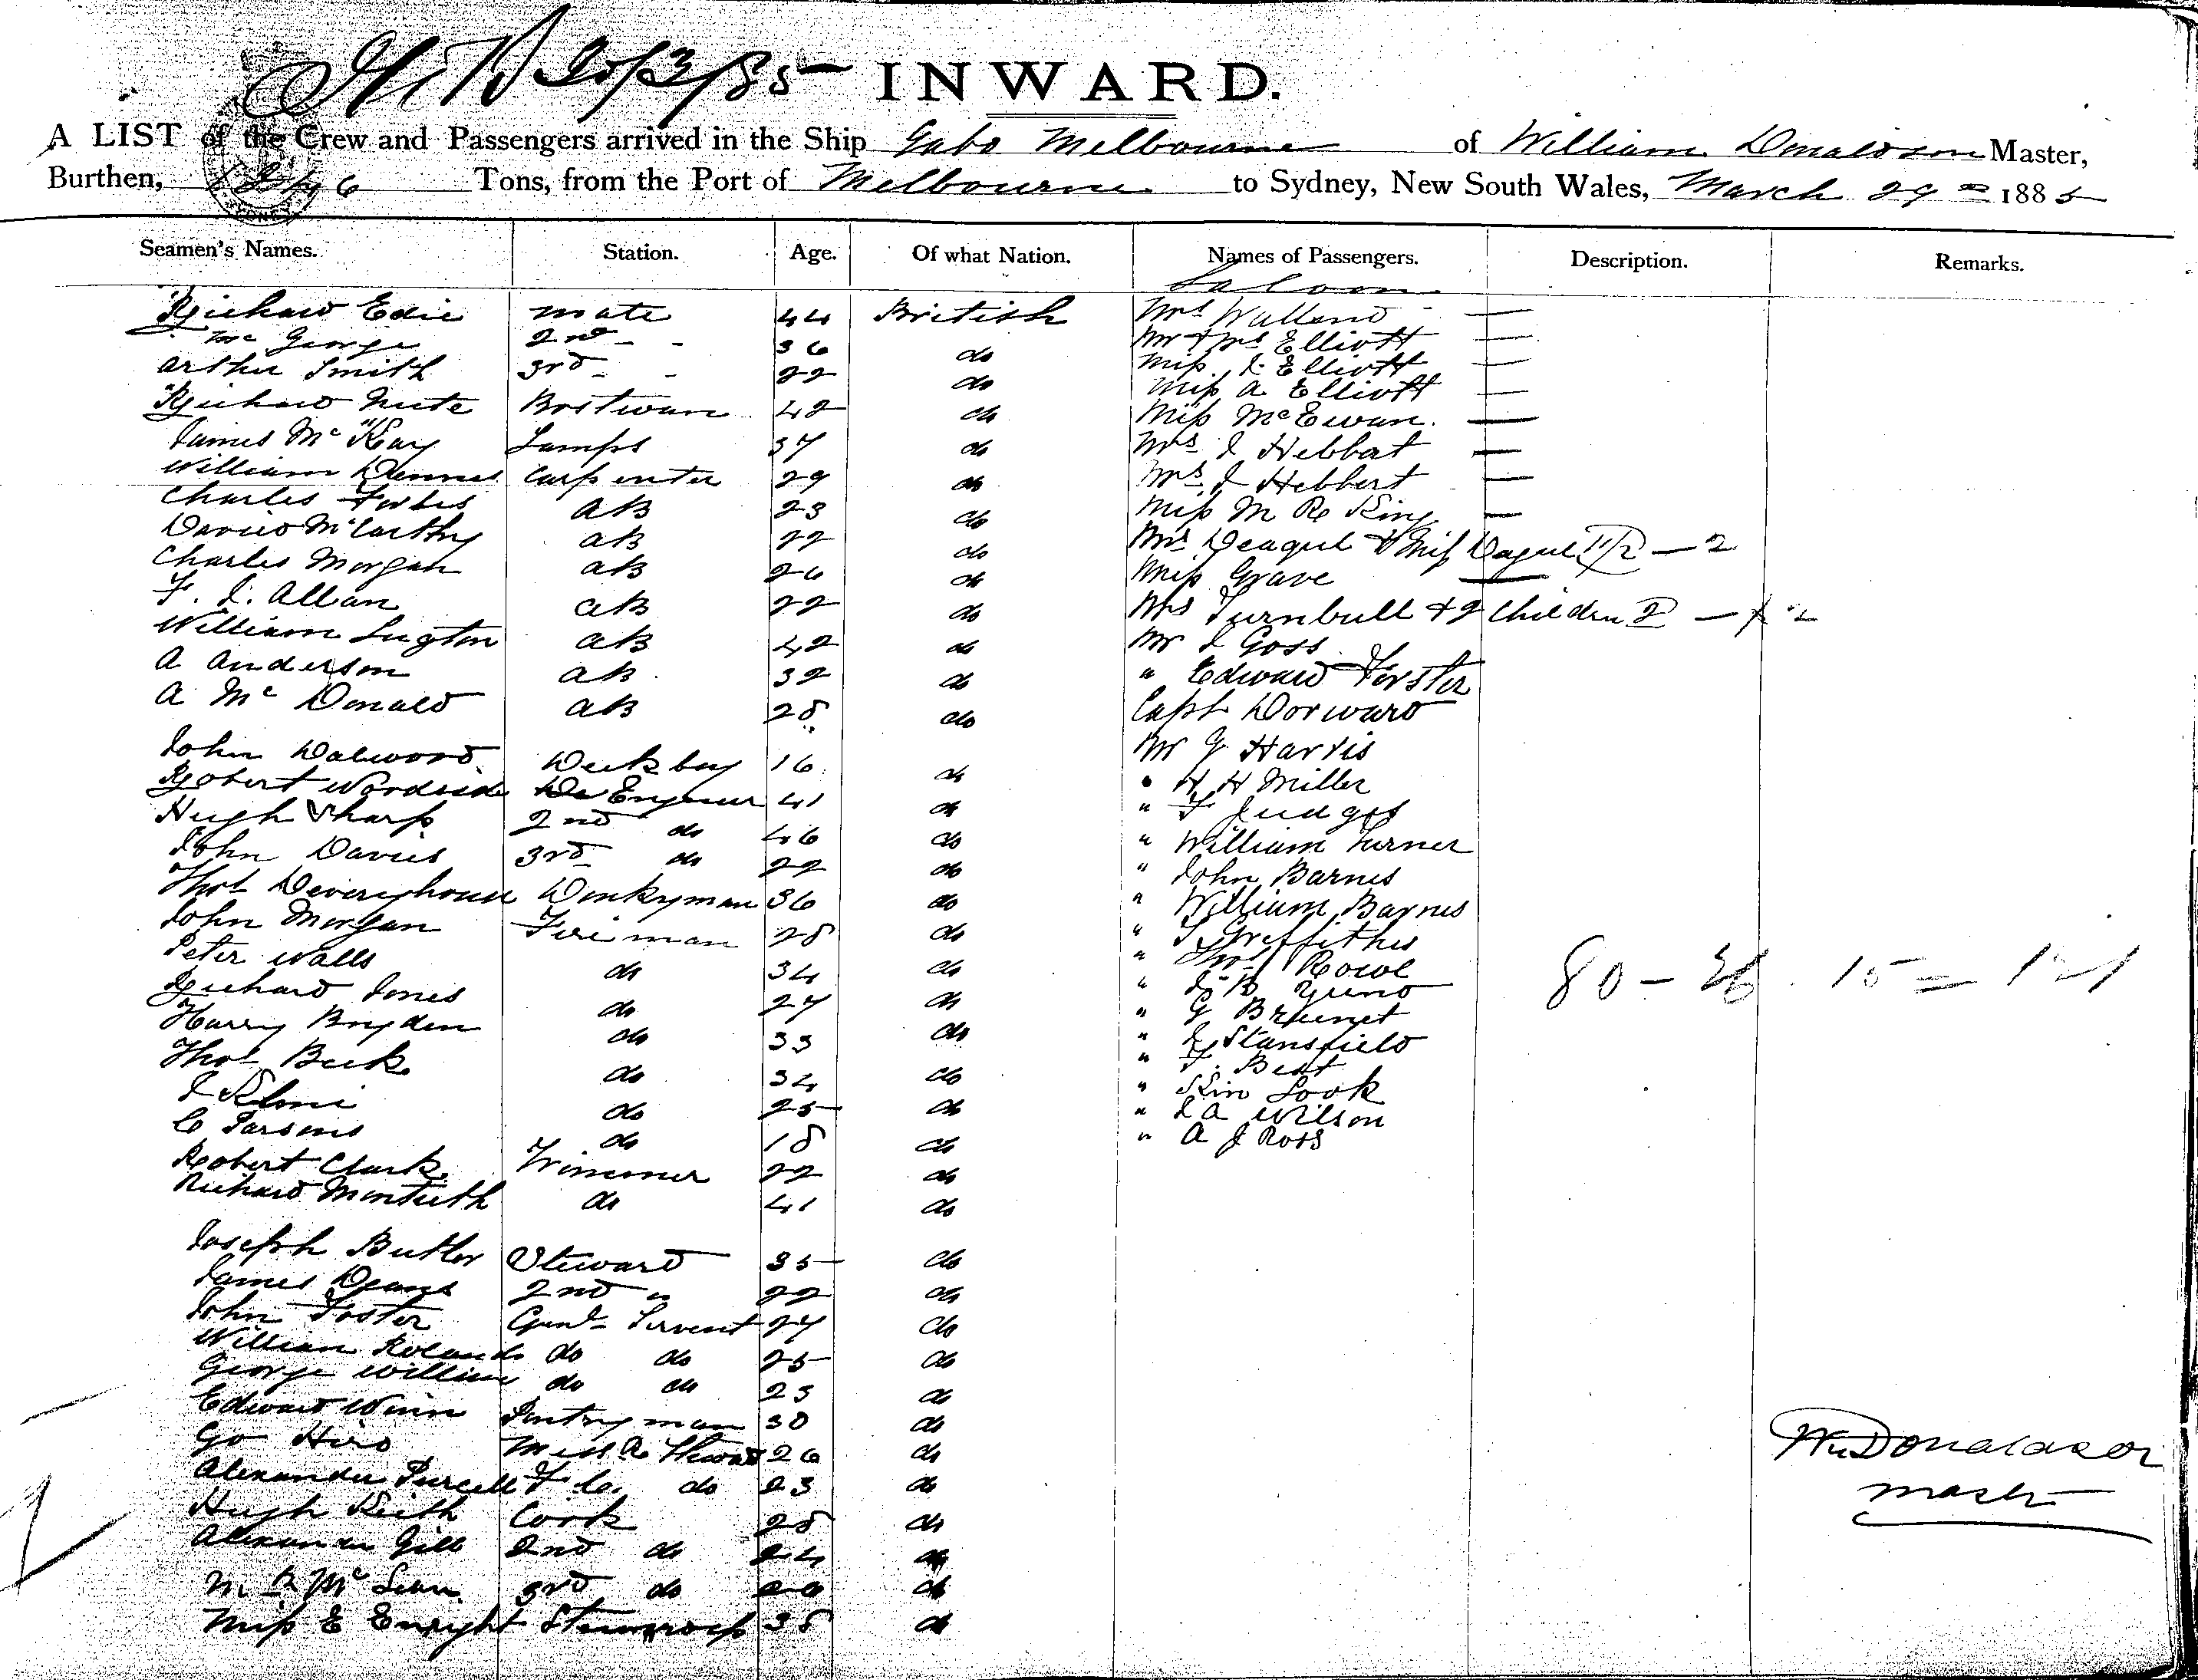 20/3/85 INWARD.
A LIST of the Crew and Passengers arrived in the Ship Gabo Melbourne of William Donaldson Master,
Burthen, Tons, from the Port of Melbourne to Sydney, New South Wales, March 29th 1885
Seamen's Names. Station. Age. Of what Nation. Names of Passengers. Description. Remarks.
Saloon
Richard Edie mate 44 British Mrs Walland —
Mc George 2nd - - 36 do Mr & Mrs Elliott —
Arthur Smith 3rd - - 22 do Miss J. Elliott —
Richard Nute Bostwan 42 do Miss A Elliott —
James McKay Lamps 37 do Miss McEwan. —
William Dennes Carpenter 29 do Mrs J Hebbert —
Charles Forbes AB 23 do Mrs J Hebbert —
David McCarthy AB 22 do Miss M Re King —
Charles Morgan AB 26 do Mrs Deague & Miss Dague — 2
F. J. Allan AB 22 do Miss Grave —
William Lugton AB 42 do Mrs Turnbull & 2 Children 2 — 2
A Anderson AB 32 do Mr J Goss
A McDonald AB 28 do " Edward Forster
Capt Dorward
John Dalwood Deck boy 16 do Mr G Harris
Robert Woodside Engineer 41 do " H H Miller
Hugh Sharp 2nd do 46 do " F Judges
John Davies 3rd do 22 do " William Turner
Thos Deveryhouse Donkyman 36 do " John Barnes
John Morgan Fireman 28 do " William Barnes
Peter Walls do 34 do " Griffiths
Richard Jones do 27 do " Thos Rowe
Harry Bryden do 33 do " J B
Thos Beck do 34 do " G Brunet
J do 25 do " Stansfield
C Parsons do 18 do " F. Beat
Robert Clark Trimmer 22 do " Kin Look
Richard Montieth do 41 do " J A Wilson
" A J Ross
80 - 26 . 15 = 121
Joseph Butler Steward 35 do
James Deans 2nd " 22 do
John Foster Genl Servent 27 do
William Rolands do do 25 do
George William do do 23 do
Edward Winn Pantryman 30 do
Go Hiro Mess R Steward 26 do
Alexander Purcell F. C. do 23 do
Hugh Keith Cook 28 do
Alexander Gill 2nd do 24 do
McLean 3rd do do
Miss E Enright 38 do
Wm Donaldson
Master